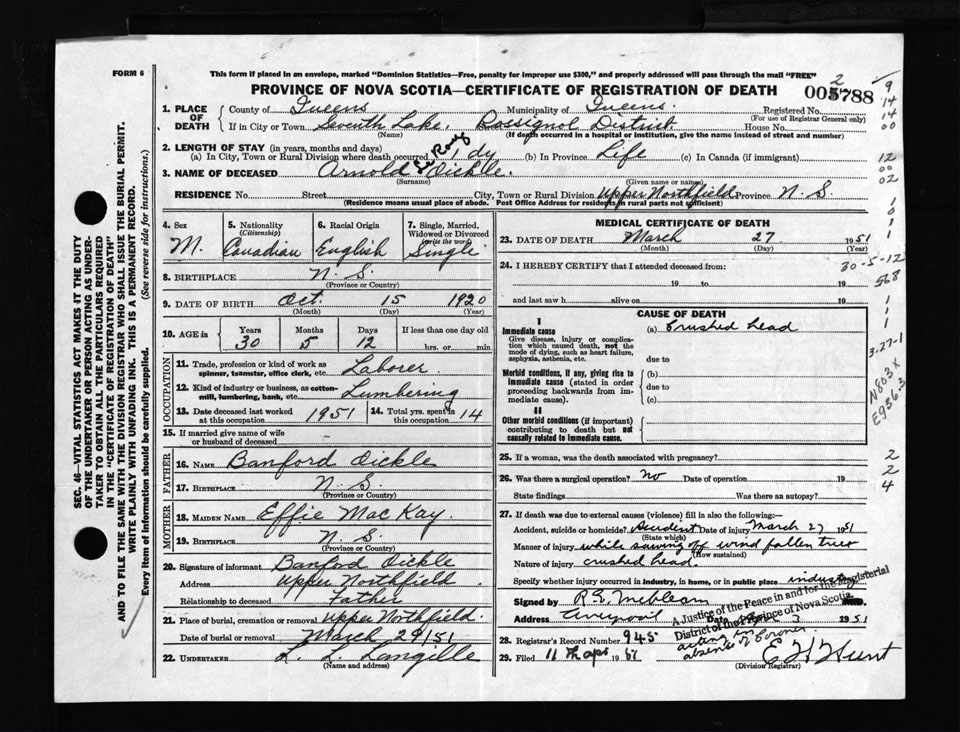 FORM 6
This form if placed in an envelope, marked "Dominion Statistics—Free, penalty for improper use $300," and properly addressed will pass through the mail "FREE"
2
PROVINCE OF NOVA SCOTIA—CERTIFICATE OF REGISTRATION OF DEATH 005788
1. PLACE OF DEATH County of Queens Municipality of Queens. Registered No.
(For use of Registrar General only)
If in City or Town Seventh Lake, Rossignol District House No.
(Name) (If death occurred in a hospital or institution, give the name instead of street and number)
2. LENGTH OF STAY (in years, months and days)
(a) In City, Town or Rural Division where death occurred 1 dy (b) In Province Life (c) In Canada (if immigrant)
3. NAME OF DECEASED Arnold LeRoy Oickle.
(Surname) (Given name or names)
RESIDENCE No. Street City, Town or Rural Division Upper Northfield Province N.S.
(Residence means usual place of abode. Post Office Address for residents in rural parts not sufficient)
4. Sex M. 5. Nationality (Citizenship) Canadian 6. Racial Origin English 7. Single, Married, Widowed or Divorced (write the word) Single
8. BIRTHPLACE N.S.
(Province or Country)
9. DATE OF BIRTH Oct. 15 1920
(Month) (Day) (Year)
10. AGE in Years 30 Months 5 Days 12 If less than one day old hrs. or min
OCCUPATION
11. Trade, profession or kind of work as spinner, teamster, office clerk, etc. Laborer.
12. Kind of industry or business, as cotton-mill, lumbering, bank, etc. Lumbering
13. Date deceased last worked at this occupation 1951 14. Total yrs. spent in this occupation 14
15. If married give name of wife or husband of deceased
FATHER
16. NAME Banford Oickle
17. BIRTHPLACE N.S.
(Province or Country)
MOTHER
18. MAIDEN NAME Effie MacKay.
19. BIRTHPLACE N.S.
(Province or Country)
20. Signature of informant Banford Oickle
Address Upper Northfield.
Relationship to deceased Father
21. Place of burial, cremation or removal Upper Northfield.
Date of burial or removal March 29/51
22. UNDERTAKER L. L. Langille
(Name and address)
MEDICAL CERTIFICATE OF DEATH
23. DATE OF DEATH March 27 1951
(Month) (Day) (Year)
24. I HEREBY CERTIFY that I attended deceased from:
19 to 19
and last saw h alive on 19
CAUSE OF DEATH
I
Immediate cause (a) Crushed head
Give disease, injury or complication which caused death, not the mode of dying, such as heart failure, asphyxia, asthenia, etc.
due to
Morbid conditions, if any, giving rise to immediate cause (stated in order proceeding backwards from immediate cause).
(b)
due to
(c)
II
Other morbid conditions (if important) contributing to death but not causally related to immediate cause.
25. If a woman, was the death associated with pregnancy?
26. Was there a surgical operation? No Date of operation 19
State findings Was there an autopsy?
27. If death was due to external causes (violence) fill in also the following:—
Accident, suicide or homicide? Accident Date of injury March 27 1951
(State which)
Manner of injury while sawing off wind fallen tree
(How sustained)
Nature of injury crushed head.
Specify whether injury occurred in industry, in home, or in public place industry
Signed by
Address Liverpool Date 1951
A Justice of the Peace in and for the Magisterial
District of the Province of Nova Scotia.
acting in
absence of Coroner.
28. Registrar's Record Number 945
29. Filed 11th Apr 1951 E H Hunt
(Division Registrar)
SEC. 46—VITAL STATISTICS ACT MAKES IT THE DUTY
OF THE UNDERTAKER OR PERSON ACTING AS UNDER-
TAKER TO OBTAIN ALL THE PARTICULARS REQUIRED
IN THE "CERTIFICATE OF REGISTRATION OF DEATH"
AND TO FILE THE SAME WITH THE DIVISION REGISTRAR WHO SHALL ISSUE THE BURIAL PERMIT.
WRITE PLAINLY WITH UNFADING INK. THIS IS A PERMANENT RECORD.
Every item of information should be carefully supplied. (See reverse side for instructions.)
9
14
14
00
12
00
02
1
0
1
1
1
30-5-12
568
1
1
1
3.27-1
N803X
E936.3
2
2
4